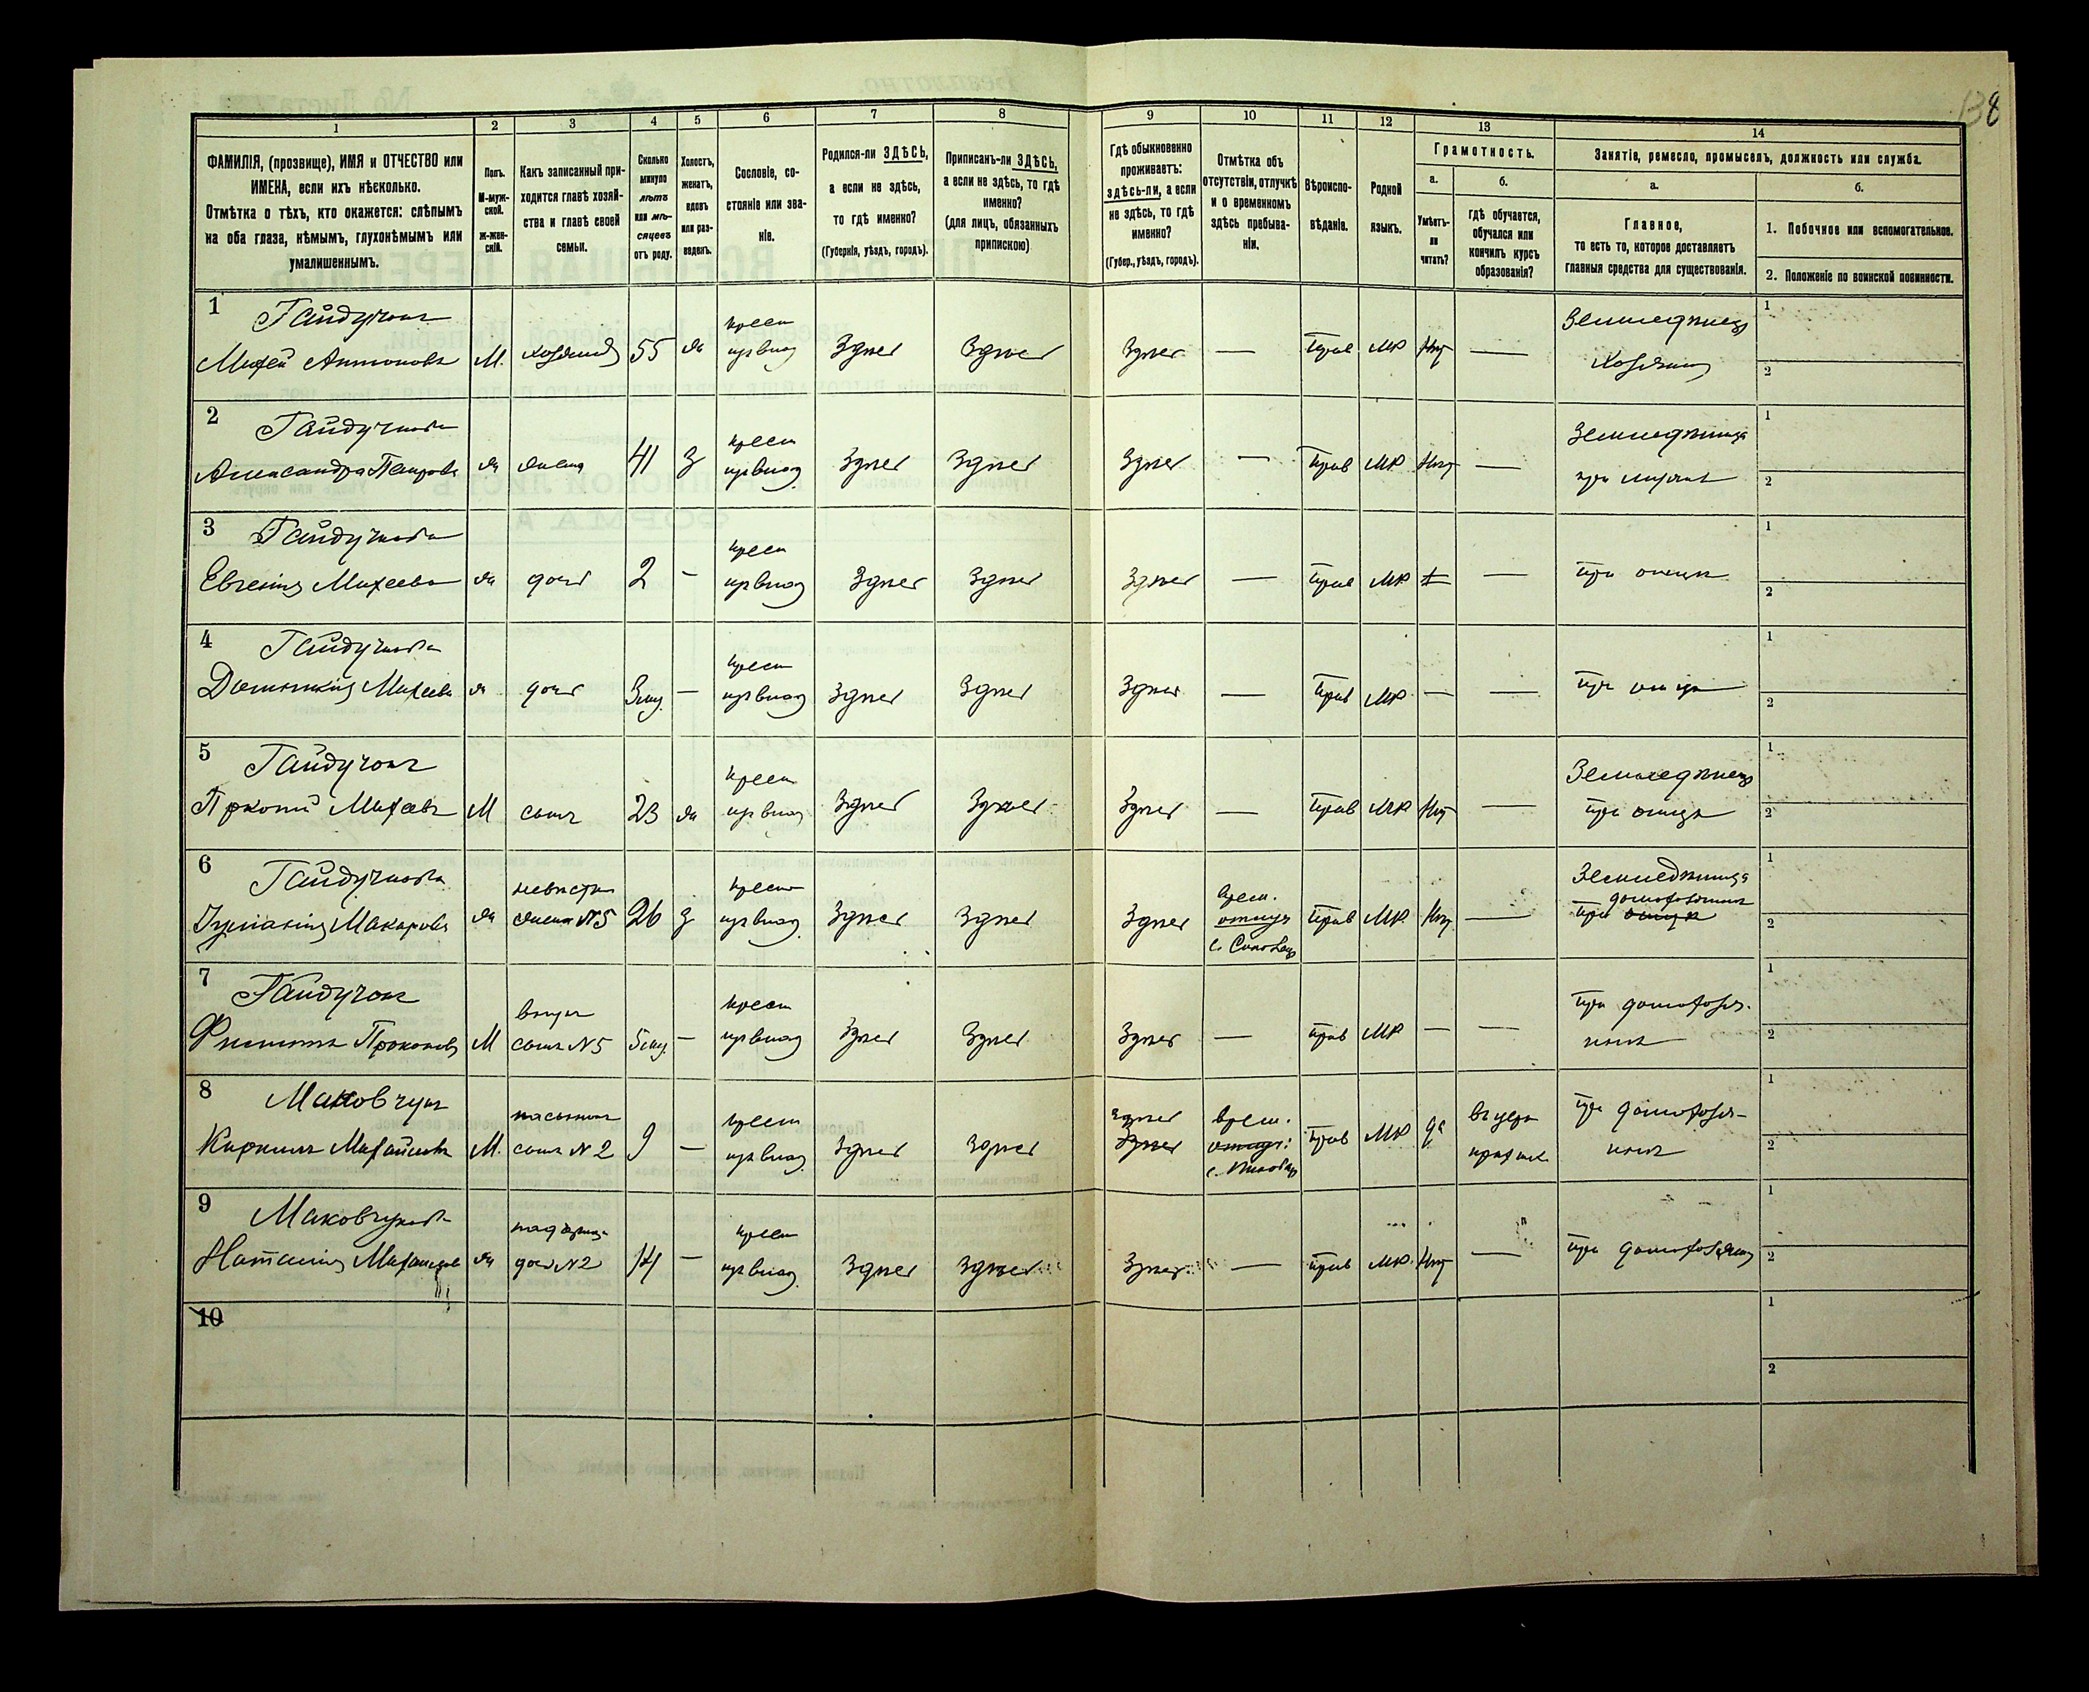 138
1
2
3
4
5
6
7
8
9
10
11
12
13
14
ФАМИЛІЯ, (прозвище), ИМЯ и ОТЧЕСТВО или
ИМЕНА, если ихъ нѣсколько.
Отмѣтка о тѣхъ, кто окажется: слѣпымъ
на оба глаза, нѣмымъ, глухонѣмымъ или
умалишеннымъ.
Полъ.
М-муж-
ской.
ж-жен-
скій.
Какъ записанный при-
ходится главѣ хозяй-
ства и главѣ своей
семьи.
Сколько
минуло
лѣтъ
или мѣ-
сяцевъ
отъ роду.
Холостъ,
женатъ,
вдовъ
или раз-
веденъ.
Сословіе, со-
стояніе или зва-
ніе.
Родился-ли ЗДѢСЬ,
а если не здѣсь,
то гдѣ именно?
(Губернія, уѣздъ, городъ).
Приписанъ-ли ЗДѢСЬ,
а если не здѣсь, то гдѣ
именно?
(для лицъ, обязанныхъ
припискою)
Гдѣ обыкновенно
проживаетъ:
здѣсь-ли, а если
не здѣсь, то гдѣ
именно?
(Губер., уѣздъ, городъ).
Отмѣтка объ
отсутствіи, отлучкѣ
и о временномъ
здѣсь пребыва-
ніи.
Вѣроиспо-
вѣданіе.
Родной
языкъ.
Грамотность.
а.
б.
Умѣетъ-
ли
читать?
гдѣ обучается,
обучался или
кончилъ курсъ
образованія?
Занятіе, ремесло, промыселъ, должность или служба.
а.
б.
Главное,
то есть то, которое доставляетъ
главныя средства для существованія.
1. Побочное или вспомогательное.
2. Положеніе по воинской повинности.
1
Гайдучокъ
Михей Антоновъ
М.
хозяинъ
55
ж
крест
Здѣсь
Здѣсь
Здѣсь
—
Прав
МР
Нѣт
—
Земледѣлец
Хозяинъ
1
2
2
Гайдучкова
Александра Петрова
ж
жена
41
З
крест
Здѣсь
Здѣсь
Здѣсь
—
Прав
МР
Нѣт
—
Земледѣлица
при мужѣ
1
2
3
Гайдучкова
Евгенія Михеева
ж
дочь
2
-
крест
Здѣсь
Здѣсь
Здѣсь
—
Прав
МР
—
при отцѣ
1
2
4
Гайдучкова
Михеева
ж
дочь
3 мц.
—
крест
Здѣсь
Здѣсь
Здѣсь
—
Прав
МР
—
—
при отцѣ
1
2
5
Гайдучокъ
Михеевъ
М
сынъ
23
ж
крест
Здѣсь
Здѣсь
Здѣсь
—
Прав
МР
Нѣт
—
Земледѣлец
при отцѣ
1
2
6
Гайдучкова
Макарова
ж
невѣстка
жена №5
26
З
крест
Здѣсь
Здѣсь
Здѣсь
врем.
отлуч
Прав
МР
Нѣт
—
Земледѣлица
при отцѣ
1
2
7
Гайдучокъ
М
внукъ
сынъ №5
5 мц.
—
крест
Здѣсь
Здѣсь
Здѣсь
—
прав
МР
—
—
при домохозя-
инѣ
1
2
8
Маковчукъ
Кирилъ Михайловъ
М.
пасынокъ
сынъ №2
9
—
крест
Здѣсь
Здѣсь
Здѣсь
Здѣсь
врем.
Прав
МР
да
при домохозя-
инѣ
1
2
9
Маковчукова
Наталія
ж
падчерица
дочь №2
14
—
крест
Здѣсь
Здѣсь
Здѣсь
—
прав
МР.
Нѣт
—
при домохозяинѣ
1
2
10
1
2